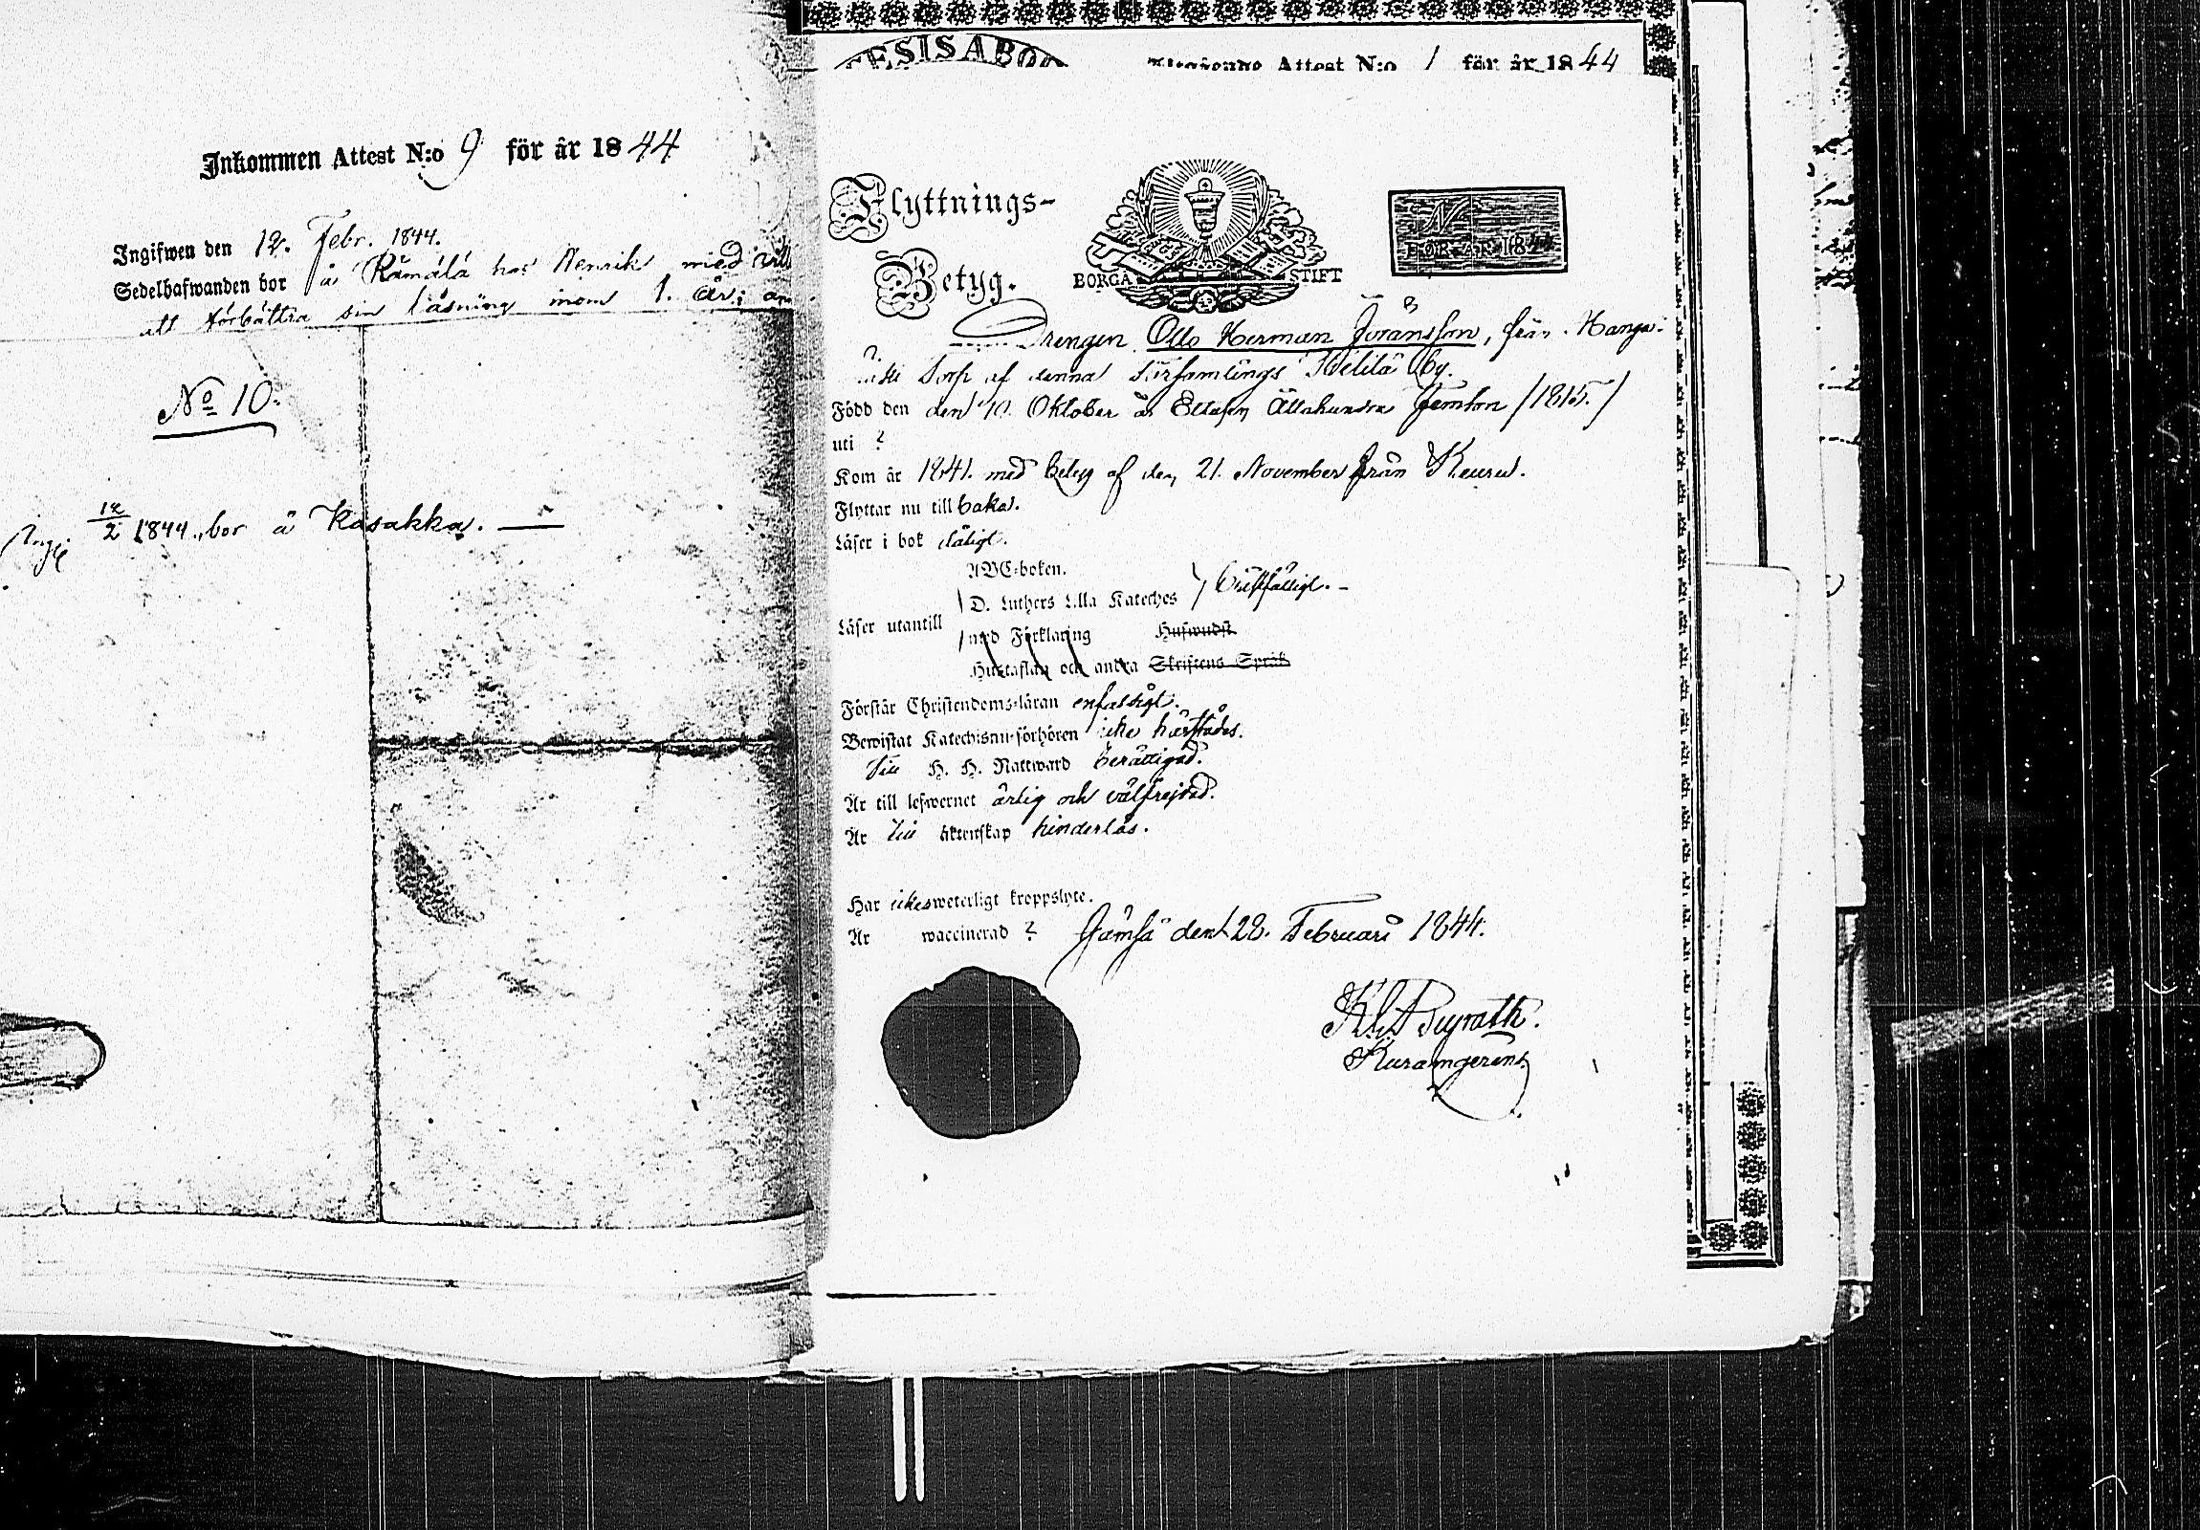 Inkommen Attest N:o 9 för år 1844
Ingifwen den 12. Febr. 1844.
Sedelhafwanden bor å Rämälä hos Henrik med vill
att förbättra sin läsning inom 1. år;
No 10.
Ingif 12/2 1844, bor å Kasakka.
ESISABO
Attest N:o 1 för år 1844
Flyttnings-
Betyg.
BORGÅ STIFT
N
FÖR ÅR 184
Drengen Otto Herman Göransson, från Hanga-
Torp af denna Församlings by.
Född den den 10. Oktober år Ettusen Åttahundra Femton /1815./
uti ?
Kom år 1841. med betyg af den 21. November från Keuru.
Flyttar nu till baka.
Läser i bok dåligt.
ABC-boken.
D. Luthers Lilla Kateches } bristfälligt.
Läser utantill
med Förklaring Huswudst.
Hustaflan och andra Skriftens Språk
Förstår Christendoms-läran enfaldigt.
Bewistat Katechismi-förhören icke härstädes.
Till H. H. Nattward berättigad.
Är till lefwernet ärlig och välfrejdad.
Är till äktenskap hinderlös.
Har icke sweterligt kroppslyte.
Är waccinerad ? Jämsä den 28. Februari 1844.
Kuramgerens.